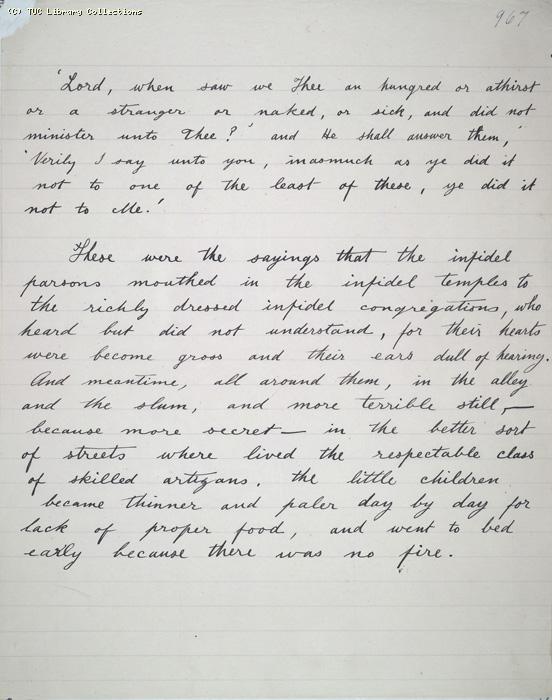 (C) TUC Library Collections
967
'Lord, when saw we Thee an hungred or athirst
or a stranger or naked, or sick, and did not
minister unto Thee?' and He shall answer them,'
'Verily I say unto you, inasmuch as ye did it
not to one of the least of these, ye did it
not to Me.'
These were the sayings that the infidel
parsons mouthed in the infidel temples to
the richly dressed infidel congregations, who
heard but did not understand, for their hearts
were become gross and their ears dull of hearing.
And meantime, all around them, in the alley
and the slum, and more terrible still, —
because more secret — in the better sort
of streets where lived the respectable class
of skilled artizans. the little children
became thinner and paler day by day for
lack of proper food, and went to bed
early because there was no fire.